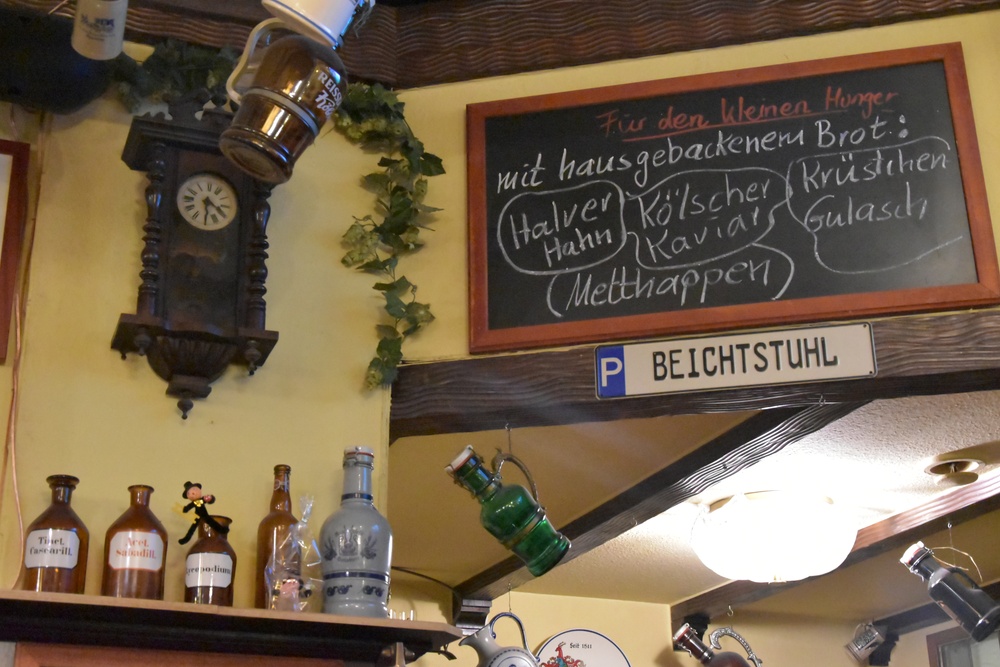 Für den kleinen Hunger
mit hausgebackenem Brot:
Halver
Hahn
Kölscher
Kaviar
Krüstchen
Gulasch
(Metthappen)
P BEICHTSTUHL
Tinct.
Cascarill.
Acet.
Sabadill.
REISS
Seit 1511